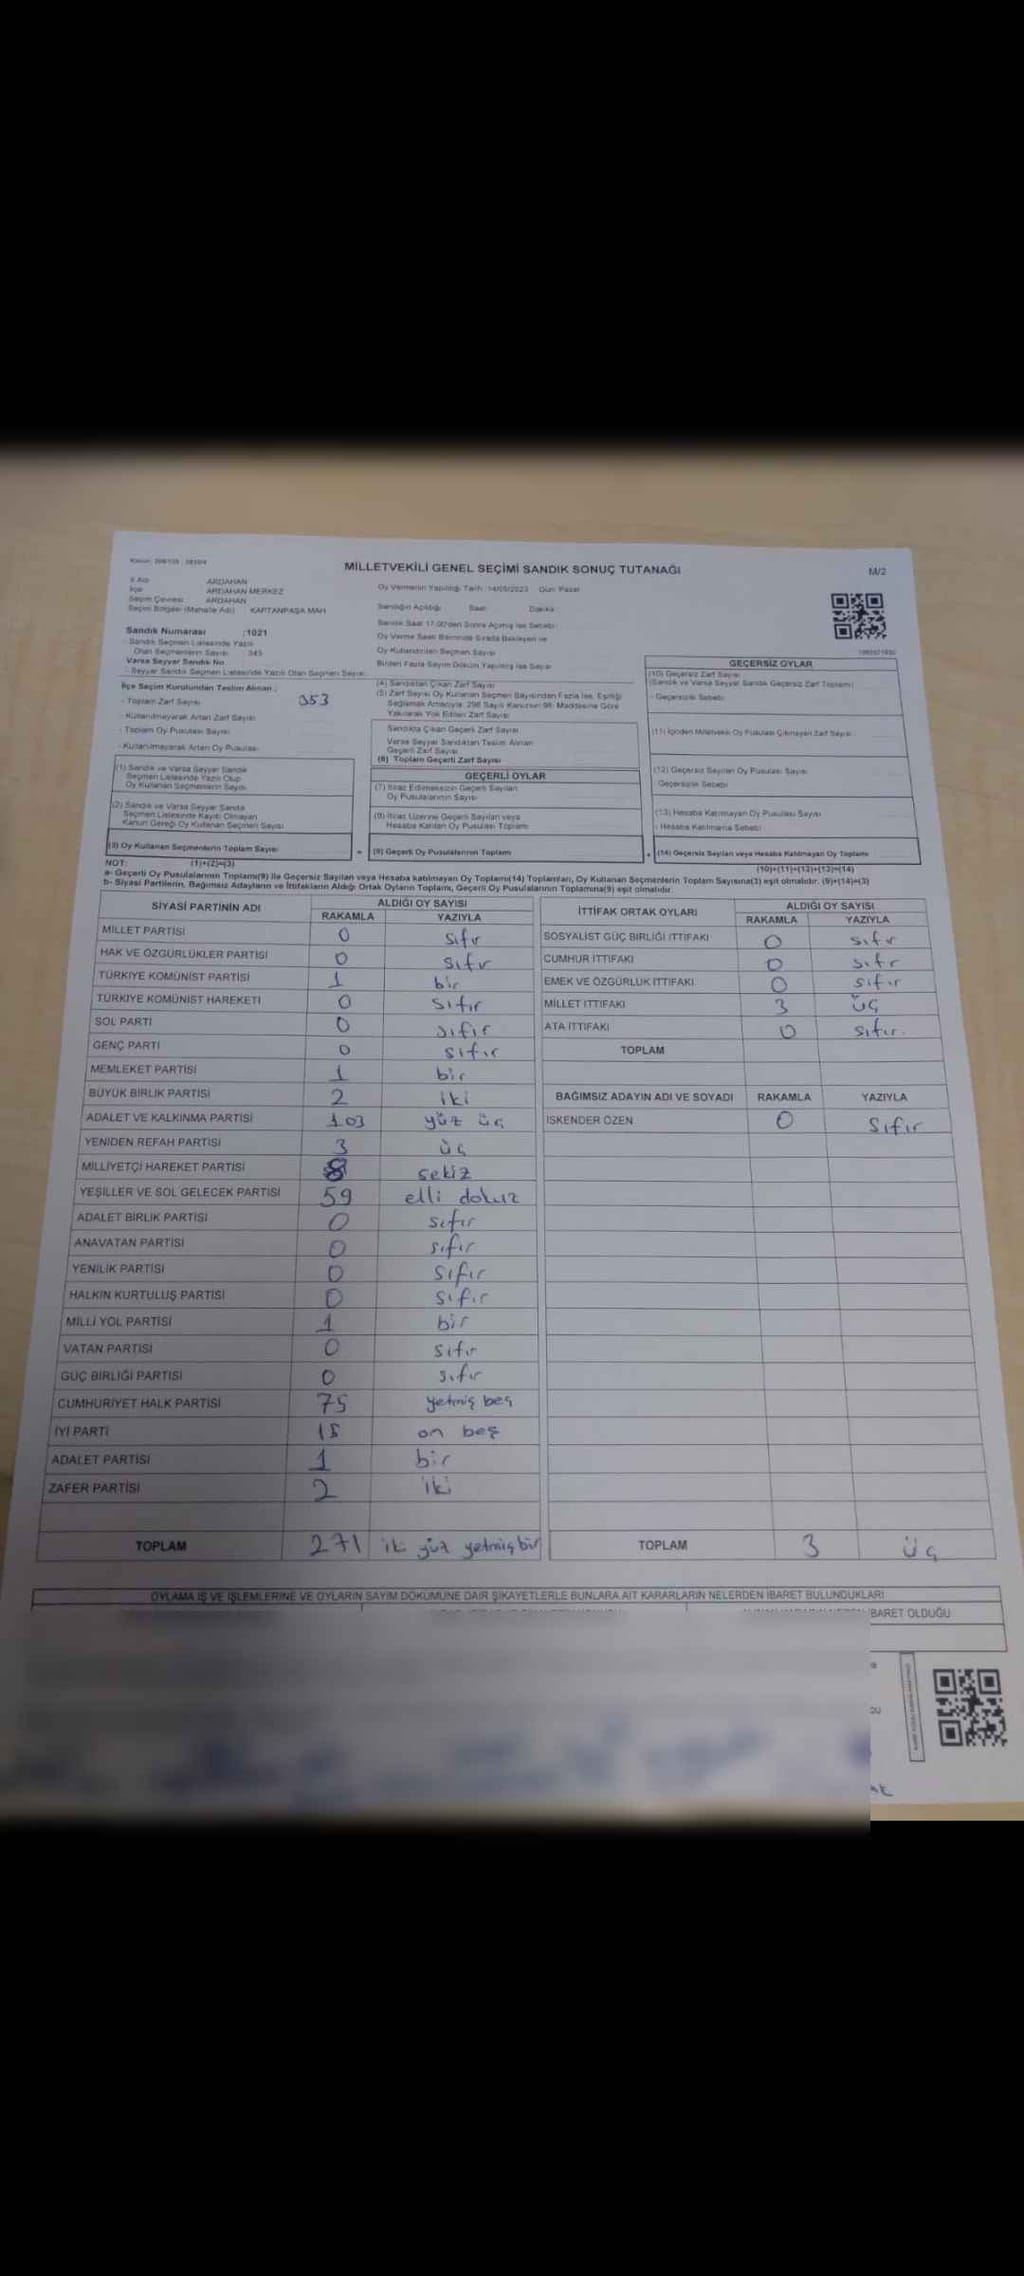 MİLLETVEKİLİ GENEL SEÇİMİ SANDIK SONUÇ TUTANAĞI
M/2
İl Adı ARDAHAN
İlçe ARDAHAN MERKEZ
Seçim Çevresi ARDAHAN
Seçim Bölgesi (Mahalle Adı) KAPTANPAŞA MAH
Sandık Numarası :1021
- Sandık Seçmen Listesinde Yazılı
Olan Seçmenlerin Sayısı : 343
Varsa Seyyar Sandık No
- Seyyar Sandık Seçmen Listesinde Yazılı Olan Seçmen Sayısı
Oy Vermenin Yapıldığı Tarih :14/05/2023 Gün: Pazar
Sandığın Açıldığı Saat Dakika
Sandık Saat 17.00'den Sonra Açılmış İse Sebebi
Oy Verme Saati Bitiminde Sırada Bekleyen ve
Oy Kullandırılan Seçmen Sayısı
Birden Fazla Sayım Döküm Yapılmış İse Sayısı
İlçe Seçim Kurulundan Teslim Alınan ;
- Toplam Zarf Sayısı 353
- Kullanılmayarak Artan Zarf Sayısı
- Toplam Oy Pusulası Sayısı
- Kullanılmayarak Artan Oy Pusulası
(1) Sandık ve Varsa Seyyar Sandık
Seçmen Listesinde Yazılı Olup
Oy Kullanan Seçmenlerin Sayısı
(2) Sandık ve Varsa Seyyar Sandık
Seçmen Listesinde Kayıtlı Olmayan
Kanun Gereği Oy Kullanan Seçmen Sayısı
(3) Oy Kullanan Seçmenlerin Toplam Sayısı
(4) Sandıktan Çıkan Zarf Sayısı
(5) Zarf Sayısı Oy Kullanan Seçmen Sayısından Fazla İse, Eşitliği
Sağlamak Amacıyla, 298 Sayılı Kanunun 98. Maddesine Göre
Yakılarak Yok Edilen Zarf Sayısı
Sandıkta Çıkan Geçerli Zarf Sayısı
Varsa Seyyar Sandıktan Teslim Alınan
Geçerli Zarf Sayısı
(6) Toplam Geçerli Zarf Sayısı
GEÇERLİ OYLAR
(7) İtiraz Edilmeksizin Geçerli Sayılan
Oy Pusulalarının Sayısı
(8) İtiraz Üzerine Geçerli Sayılan veya
Hesaba Katılan Oy Pusulası Toplamı
= (9) Geçerli Oy Pusulalarının Toplamı
GEÇERSİZ OYLAR
(10) Geçersiz Zarf Sayısı
(Sandık ve Varsa Seyyar Sandık Geçersiz Zarf Toplamı)
- Geçersizlik Sebebi
(11) İçinden Milletvekili Oy Pusulası Çıkmayan Zarf Sayısı
(12) Geçersiz Sayılan Oy Pusulası Sayısı
Geçersizlik Sebebi
(13) Hesaba Katılmayan Oy Pusulası Sayısı
- Hesaba Katılmama Sebebi
+ (14) Geçersiz Sayılan veya Hesaba Katılmayan Oy Toplamı
NOT: (1)+(2)=(3) (10)+(11)+(12)+(13)=(14)
a- Geçerli Oy Pusulalarının Toplamı(9) ile Geçersiz Sayılan veya Hesaba katılmayan Oy Toplamı(14) Toplamları, Oy Kullanan Seçmenlerin Toplam Sayısına(3) eşit olmalıdır. (9)+(14)=(3)
b- Siyasi Partilerin, Bağımsız Adayların ve İttifakların Aldığı Ortak Oyların Toplamı, Geçerli Oy Pusulalarının Toplamına(9) eşit olmalıdır.
SİYASİ PARTİNİN ADI ALDIĞI OY SAYISI
RAKAMLA YAZIYLA
MİLLET PARTİSİ 0 sıfır
HAK VE ÖZGÜRLÜKLER PARTİSİ 0 sıfır
TÜRKİYE KOMÜNİST PARTİSİ 1 bir
TÜRKİYE KOMÜNİST HAREKETİ 0 sıfır
SOL PARTİ 0 sıfır
GENÇ PARTİ 0 sıfır
MEMLEKET PARTİSİ 1 bir
BÜYÜK BİRLİK PARTİSİ 2 iki
ADALET VE KALKINMA PARTİSİ 103 yüz üç
YENİDEN REFAH PARTİSİ 3 üç
MİLLİYETÇİ HAREKET PARTİSİ 8 sekiz
YEŞİLLER VE SOL GELECEK PARTİSİ 59 elli dokuz
ADALET BİRLİK PARTİSİ 0 sıfır
ANAVATAN PARTİSİ 0 sıfır
YENİLİK PARTİSİ 0 sıfır
HALKIN KURTULUŞ PARTİSİ 0 sıfır
MİLLİ YOL PARTİSİ 1 bir
VATAN PARTİSİ 0 sıfır
GÜÇ BİRLİĞİ PARTİSİ 0 sıfır
CUMHURİYET HALK PARTİSİ 75 yetmiş beş
İYİ PARTİ 15 on beş
ADALET PARTİSİ 1 bir
ZAFER PARTİSİ 2 iki
TOPLAM 271 iki yüz yetmiş bir
İTTİFAK ORTAK OYLARI ALDIĞI OY SAYISI
RAKAMLA YAZIYLA
SOSYALİST GÜÇ BİRLİĞİ İTTİFAKI 0 sıfır
CUMHUR İTTİFAKI 0 sıfır
EMEK VE ÖZGÜRLÜK İTTİFAKI 0 sıfır
MİLLET İTTİFAKI 3 üç
ATA İTTİFAKI 0 sıfır
TOPLAM
BAĞIMSIZ ADAYIN ADI VE SOYADI RAKAMLA YAZIYLA
İSKENDER ÖZEN 0 sıfır
TOPLAM 3 üç
OYLAMA İŞ VE İŞLEMLERİNE VE OYLARIN SAYIM DÖKÜMÜNE DAİR ŞİKAYETLERLE BUNLARA AİT KARARLARIN NELERDEN İBARET BULUNDUKLARI
İBARET OLDUĞU